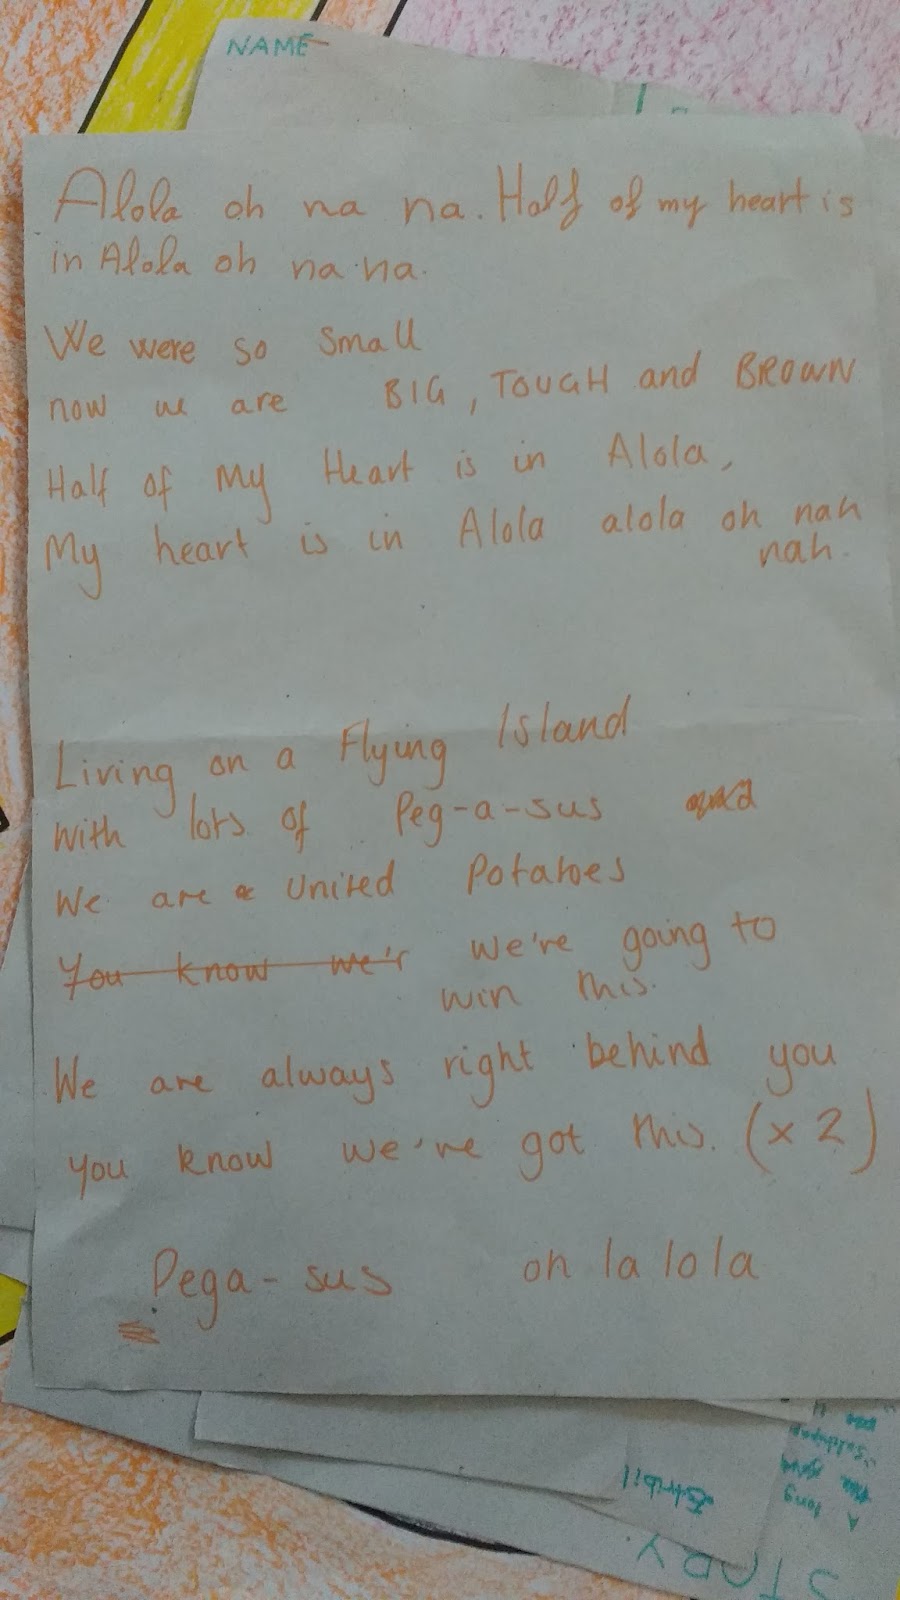 NAME
Alola oh na na. Half of my heart is
in Alola oh na na.
We were so small
now we are BIG, TOUGH and BROWN
Half of My Heart is in Alola,
My heart is in Alola alola oh nah
nah.
Living on a Flying Island
With lots of Peg-a-sus
We are a United Potatoes
You know we'r we're going to
win this.
We are always right behind you
you know we've got this. (x2)
Pega-sus oh la lola
Estribil
A long
STORY.